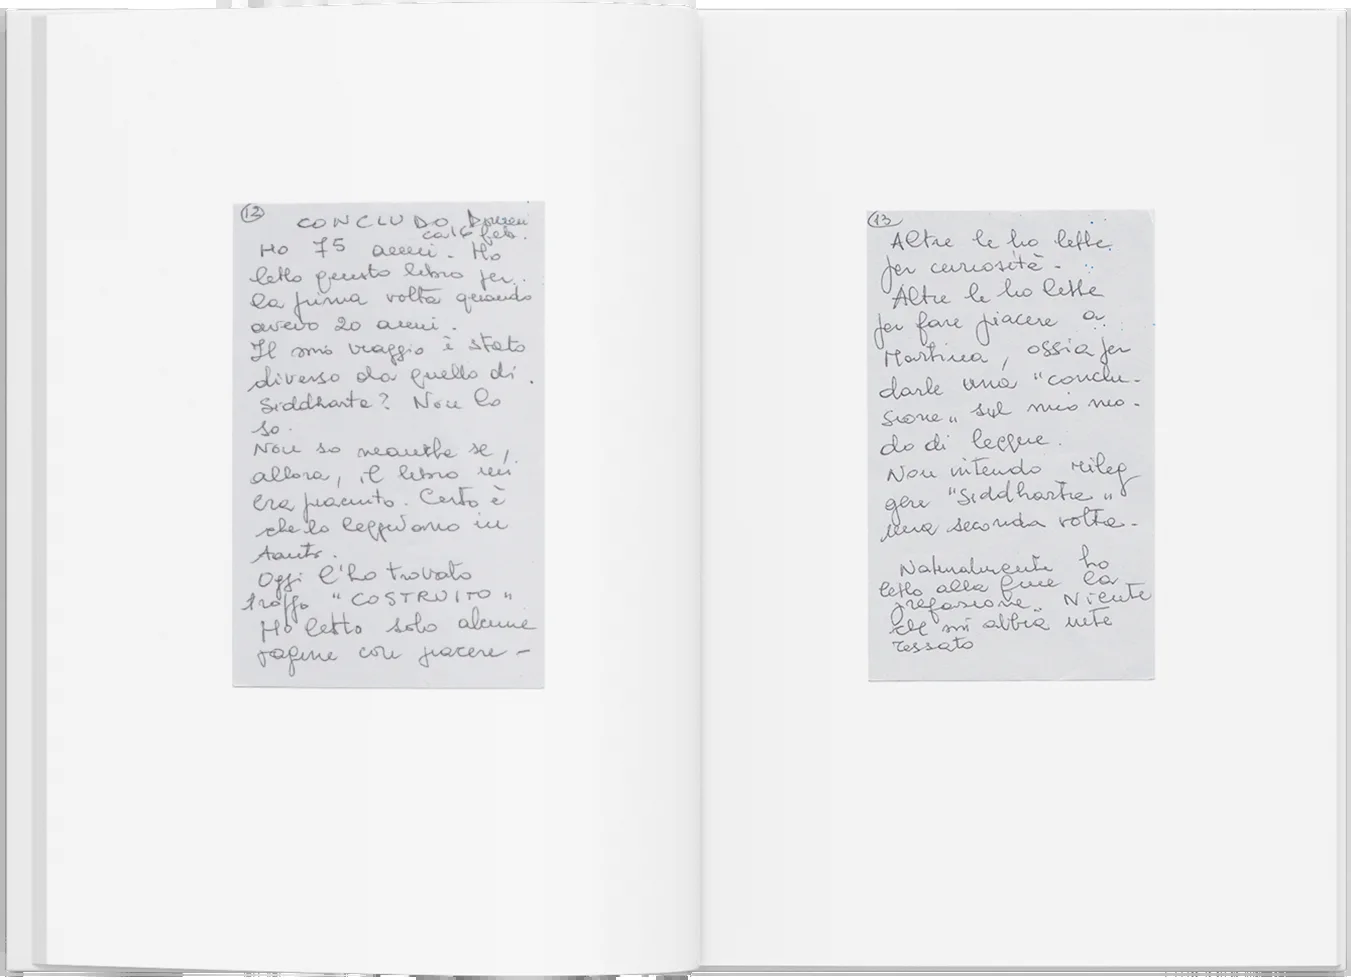 12
CONCLUDO
Ho 75 anni. Ho
letto questo libro per
la prima volta quando
avevo 20 anni.
Il mio viaggio è stato
diverso da quello di
Siddharta? Non lo
so.
Non so neanche se,
allora, il libro mi
era piaciuto. Certo è
che lo leggevano in
tanti.
Oggi l'ho trovato
troppo "COSTRUITO"
Ho letto solo alcune
pagine con piacere -
13
Altre le ho lette
per curiosità -
Altre le ho lette
per fare piacere a
Martina, ossia per
darle una "conclu-
sione" sul mio mo-
do di leggere.
Non intendo rileg
gere "Siddharta"
una seconda volta -
Naturalmente ho
letto alla fine la
prefazione. Niente
che mi abbia inte
ressato